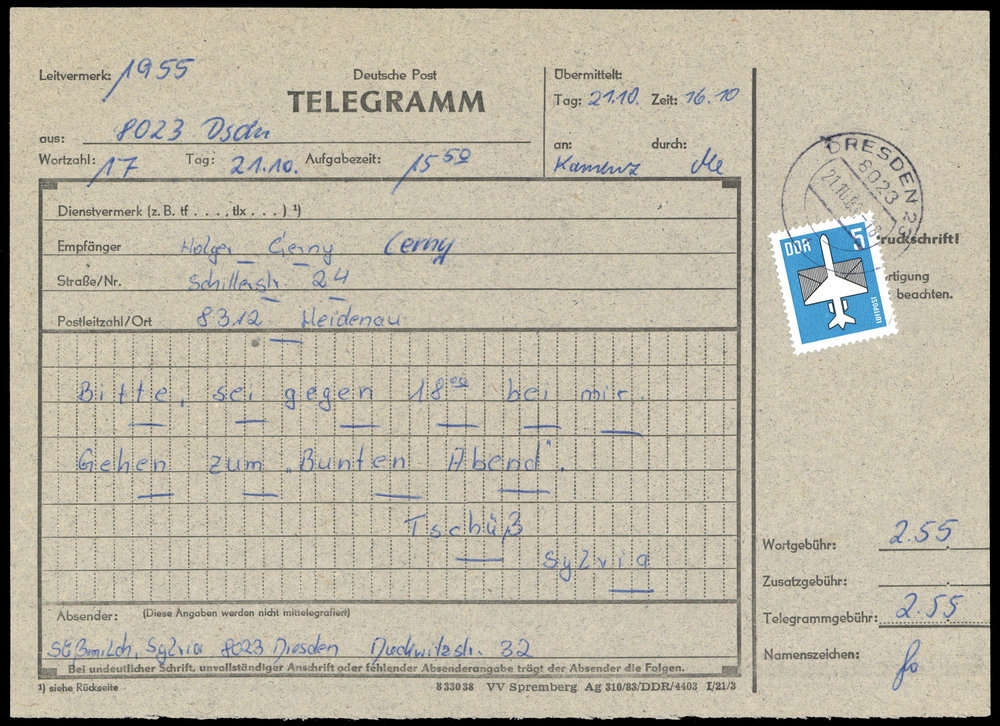 Leitvermerk: 1955
Deutsche Post
TELEGRAMM
Übermittelt:
Tag: 21.10. Zeit: 16.10
aus: 8023 Dsdn
an: durch:
Kamenz Me
Wortzahl: 17 Tag: 21.10. Aufgabezeit: 15 50
DRESDEN 23
8023
Dienstvermerk (z. B. tf . . . ., tlx . . . ) ¹)
Empfänger Holger Cerny Cerny
Straße/Nr. Schillerstr. 24
Postleitzahl/Ort 8312 Heidenau
DDR 5
LUFTPOST
ruckschrift!
rtigung
beachten.
Bitte, sei gegen 18 00 bei mir.
Gehen zum „Bunten Abend".
Tschüß
Sylvia
Wortgebühr: 2.55
Zusatzgebühr:
Telegrammgebühr: 2.55
Namenszeichen:
Absender: (Diese Angaben werden nicht mittelegrafiert)
Süßmilch, Sylvia 8023 Dresden Duckwitzstr. 32
Bei undeutlicher Schrift, unvollständiger Anschrift oder fehlender Absenderangabe trägt der Absender die Folgen.
¹) siehe Rückseite
8 330 38 VV Spremberg Ag 310/83/DDR/4403 I/21/3